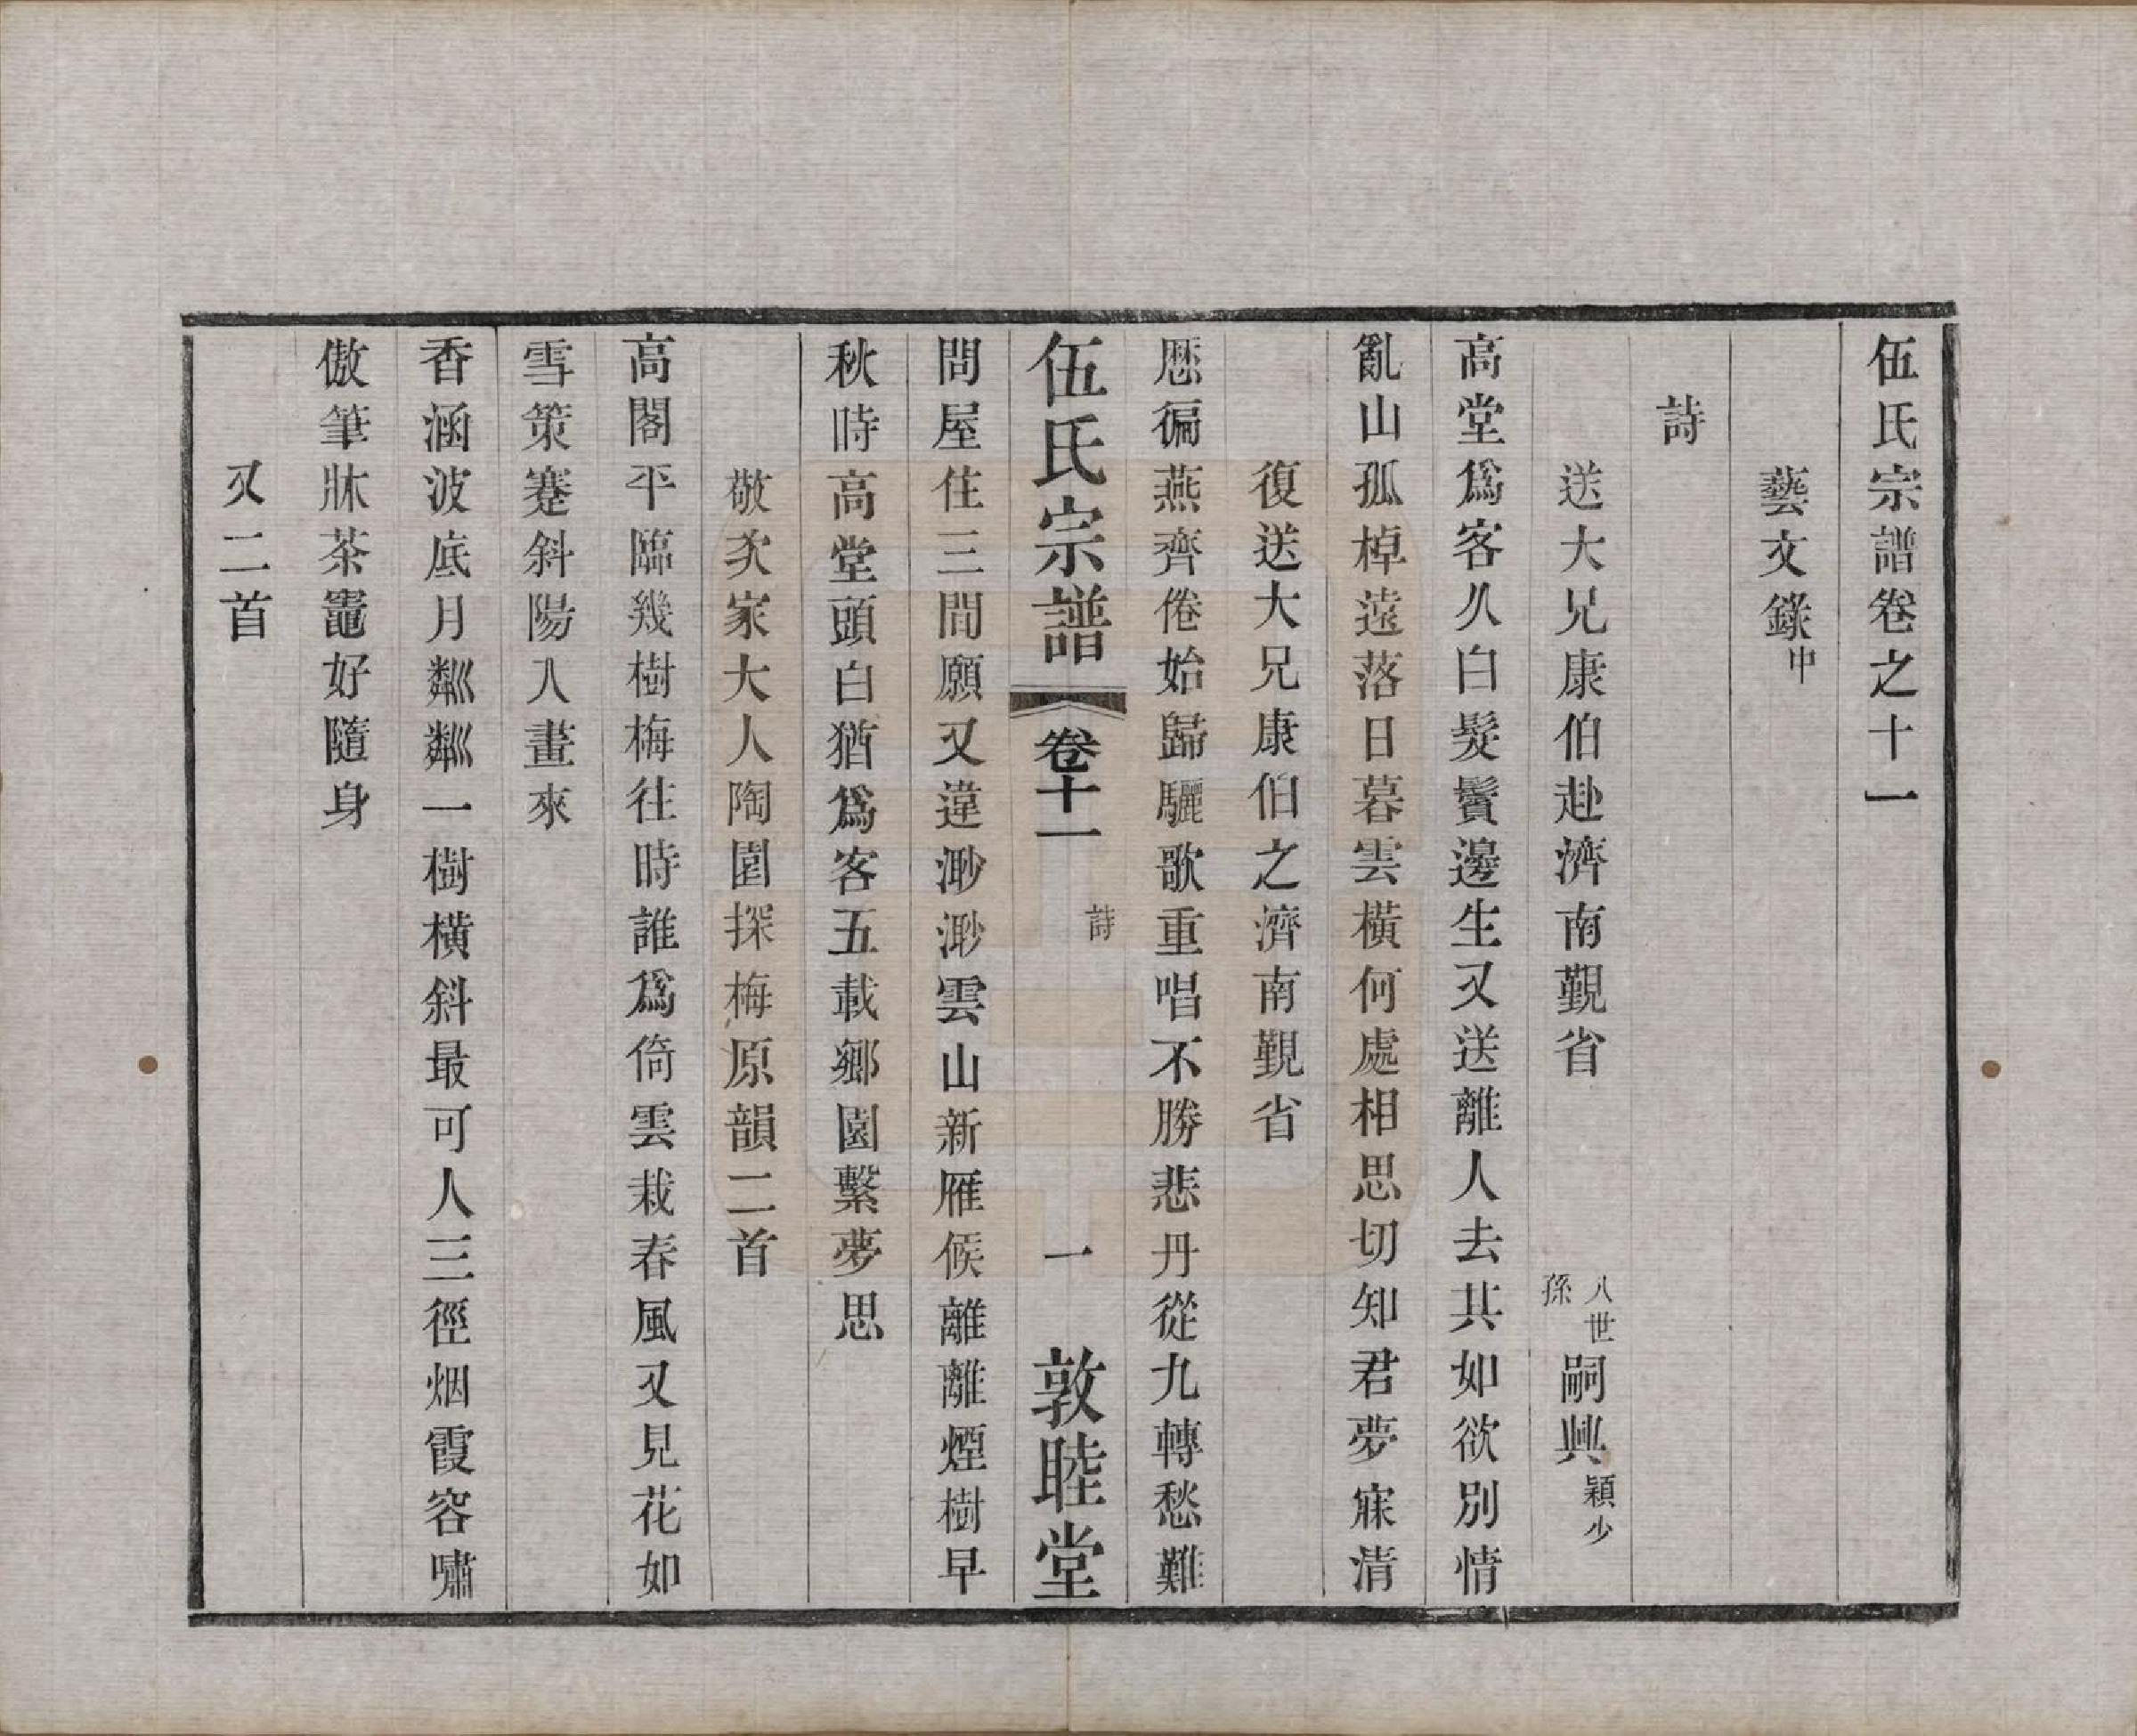 伍氏宗譜卷之十一
藝文錄中
詩
送大兄康伯赴濟南覲省 八世孫嗣興穎少
高堂爲客久白髮鬢邊生又送離人去其如欲別情
亂山孤棹遠落日暮雲橫何處相思切知君夢寐清
復送大兄康伯之濟南覲省
歷徧燕齊倦始歸驪歌重唱不勝悲丹從九轉愁難
伍氏宗譜 卷十一 詩 一 敦睦堂
問屋住三間願又違渺渺雲山新雁候離離煙樹早
秋時高堂頭白猶爲客五載鄉園繫夢思
敬次家大人陶園探梅原韻二首
高閣平臨幾樹梅往時誰爲倚雲栽春風又見花如
雪策蹇斜陽入畫來
香涵波底月粼粼一樹橫斜最可人三徑烟霞容嘯
傲筆牀茶竈好隨身
又二首